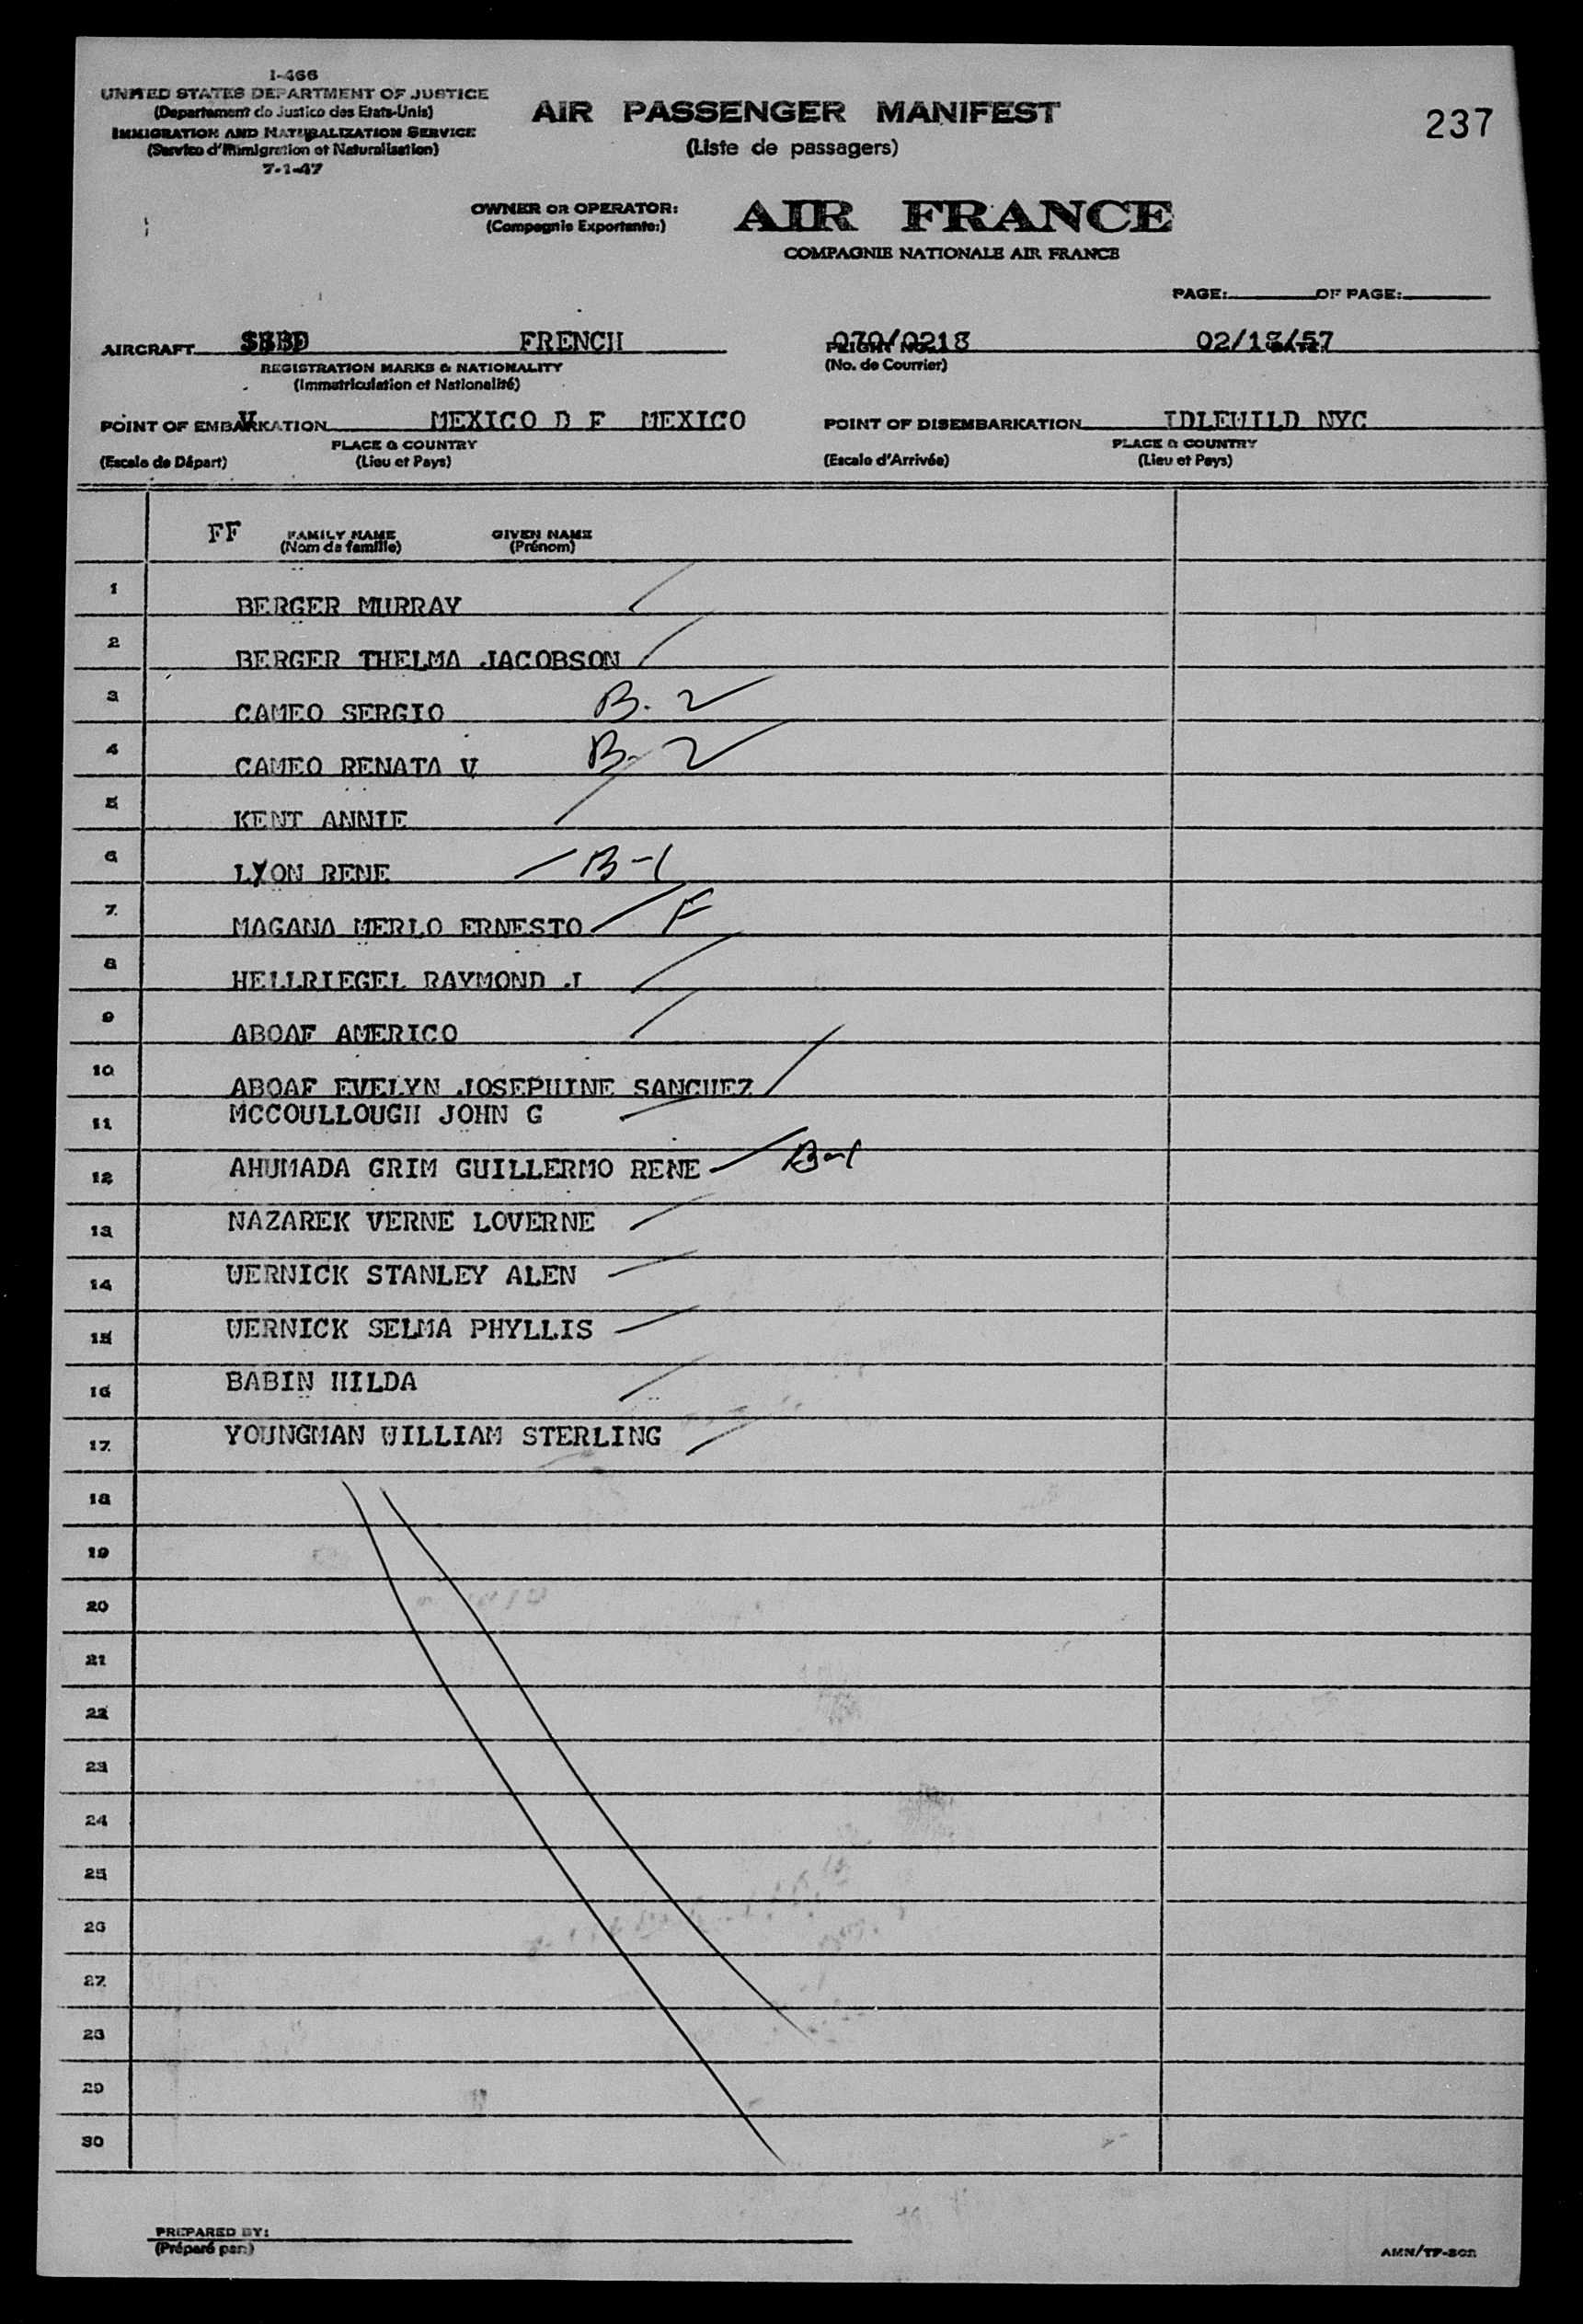 I-466
UNITED STATES DEPARTMENT OF JUSTICE
(Departement de Justice des Etats-Unis)
IMMIGRATION AND NATURALIZATION SERVICE
(Service d'Immigration et Naturalisation)
7-1-47
AIR PASSENGER MANIFEST
(Liste de passagers)
237
OWNER OR OPERATOR:
(Compagnie Exportante:)
AIR FRANCE
COMPAGNIE NATIONALE AIR FRANCE
PAGE: OF PAGE:
AIRCRAFT FRENCH
REGISTRATION MARKS & NATIONALITY
(Immatriculation et Nationalité)
070/0218
FLIGHT NO.
(No. de Courrier)
02/18/57
DATE
POINT OF EMBARKATION V MEXICO D F MEXICO
PLACE & COUNTRY
(Escale de Départ) (Lieu et Pays)
POINT OF DISEMBARKATION IDLEWILD NYC
PLACE & COUNTRY
(Escale d'Arrivée) (Lieu et Pays)
FF FAMILY NAME GIVEN NAME
(Nom de famille) (Prénom)
1 BERGER MURRAY
2 BERGER THELMA JACOBSON
3 CAMEO SERGIO B. 2
4 CAMEO RENATA V B-2
5 KENT ANNIE
6 LYON RENE B-1
7 MAGANA MERLO ERNESTO F
8 HELLRIEGEL RAYMOND J
9 ABOAF AMERICO
10 ABOAF EVELYN JOSEPHINE SANCHEZ
11 MCCOULLOUGH JOHN G
12 AHUMADA GRIM GUILLERMO RENE B-1
13 NAZAREK VERNE LOVERNE
14 WERNICK STANLEY ALEN
15 WERNICK SELMA PHYLLIS
16 BABIN HILDA
17 YOUNGMAN WILLIAM STERLING
18
19
20
21
22
23
24
25
26
27
28
29
30
PREPARED BY:
(Préparé par:)